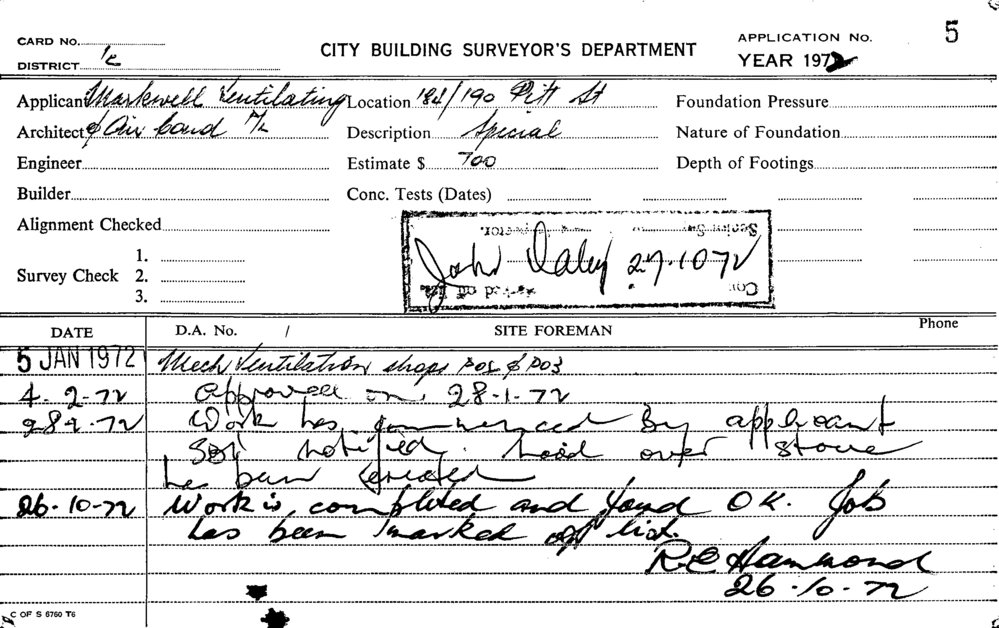 5
CARD No.
DISTRICT 1c
CITY BUILDING SURVEYOR'S DEPARTMENT
APPLICATION No.
YEAR 1972
Applicant Markwell Ventilating Location 184/190 Pitt St Foundation Pressure
Architect & Air Cond P/L Description Special Nature of Foundation
Engineer Estimate $ 700 Depth of Footings
Builder Conc. Tests (Dates)
Alignment Checked
1.
Survey Check 2.
3.
John Daley 27.10 72
DATE D.A. No. / SITE FOREMAN Phone
5 JAN 1972 Mech Ventilation shops P02 & P03
4.2.72 Approved on 28.1.72
28.2.72 Work has commenced by applicant
notified. hood over stove
has been erected
26.10.72 Work is completed and found OK. Job
has been marked off list.
R C Hammond
26.10.72
C OF S 6760 T6